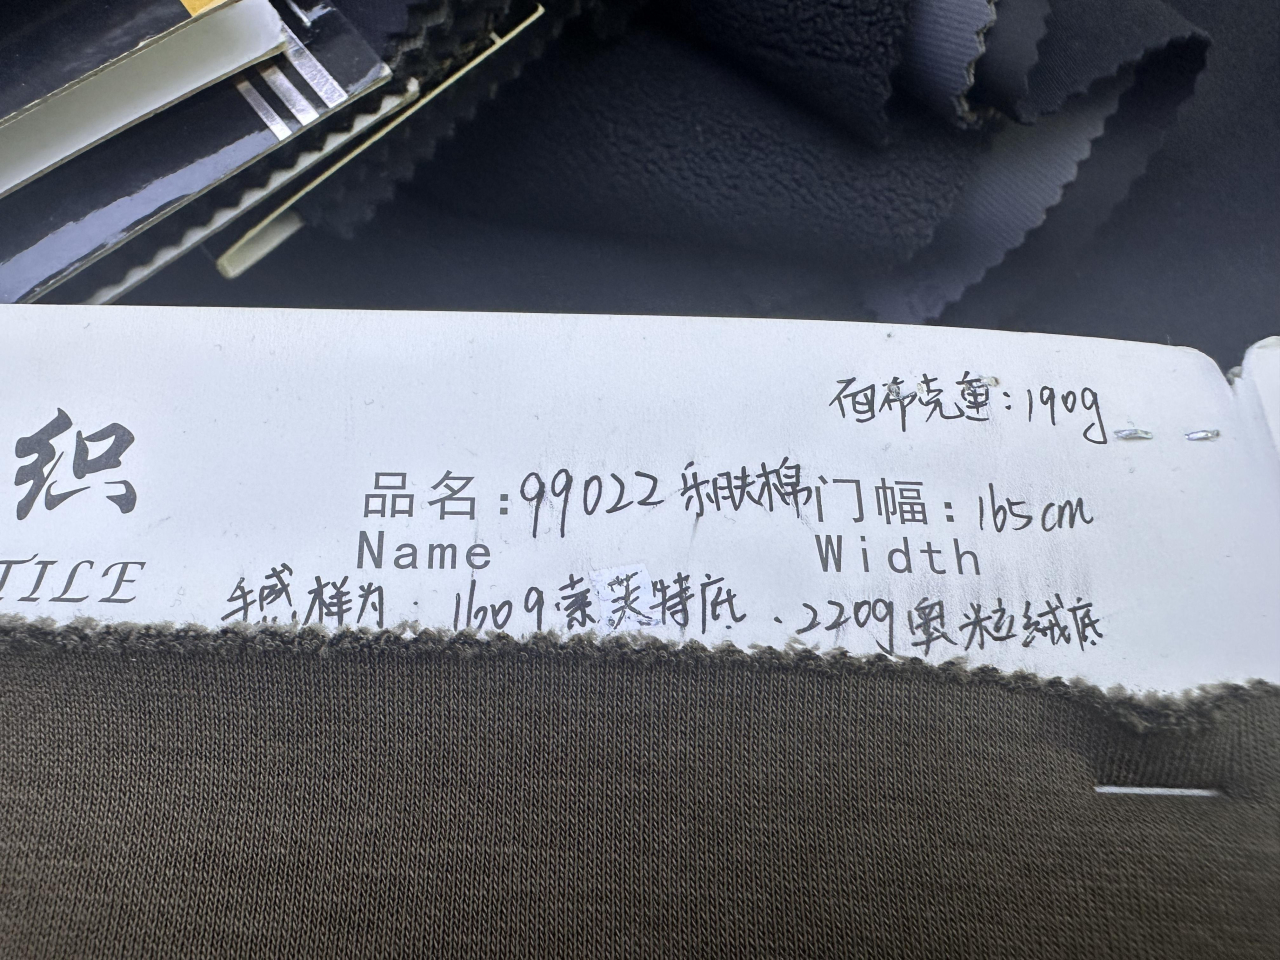 面布克重：190g
织
品名：99022乐肤棉 门幅：165cm
Name Width
TILE
手感样为. 160g索芙特底、220g奥粒绒底